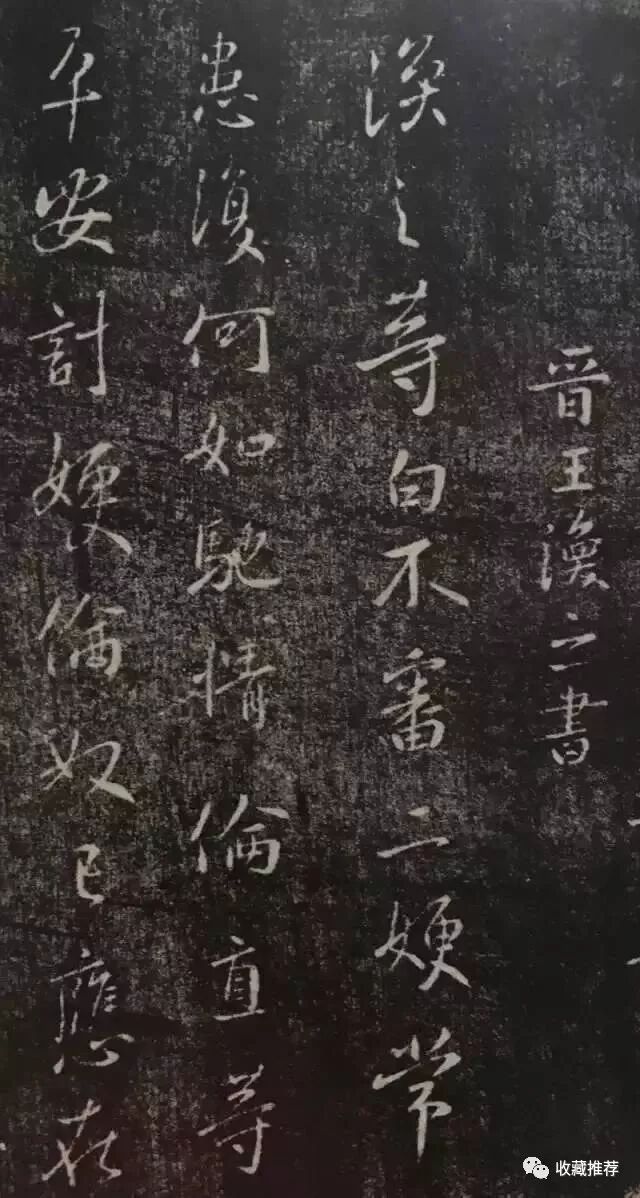 晋王渙之書
渙之等白不審二嫂常
患復何如馳情倫直等
平安計嫂倫奴已應在
收藏推荐